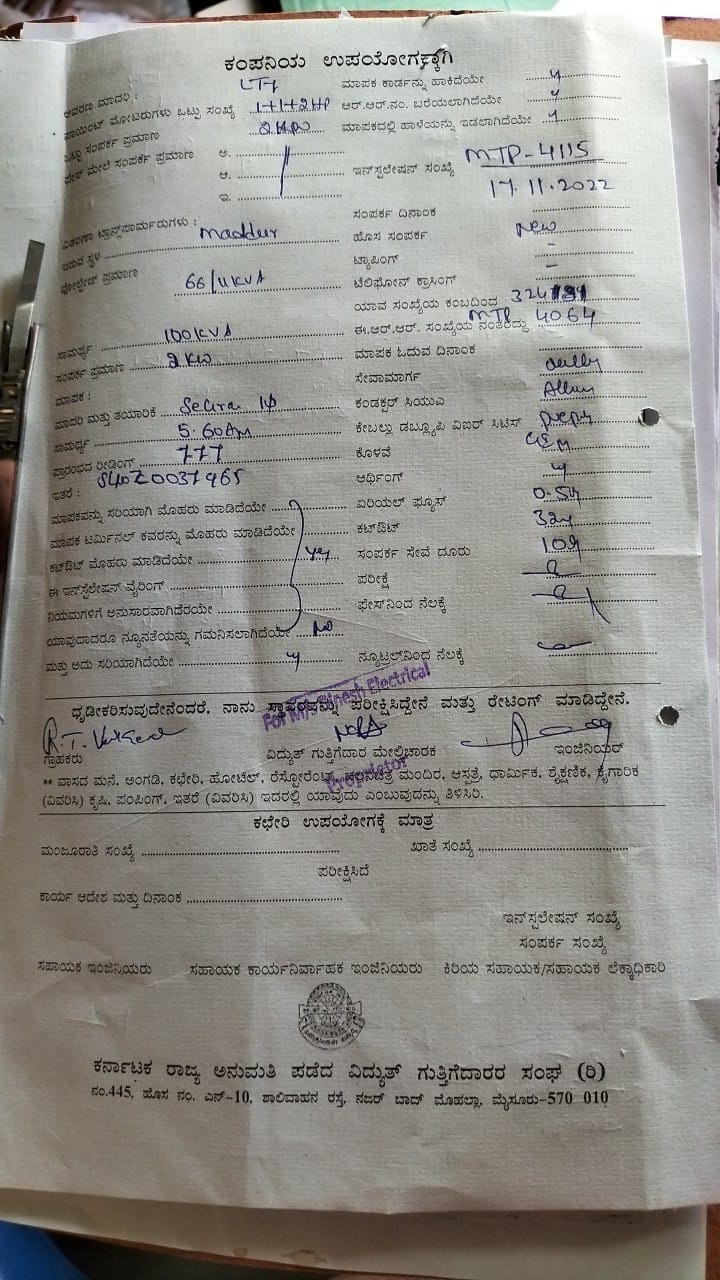 ಕಂಪನಿಯ ಉಪಯೋಗಕ್ಕಾಗಿ
ಆವರಣ ಮಾದರಿ : LT7 ಮಾಪಕ ಕಾರ್ಡನ್ನು ಹಾಕಿದೆಯೇ y
ಪಾಯಿಂಟ್ ಮೋಟರುಗಳು ಒಟ್ಟು ಸಂಖ್ಯೆ 1+1+2HP ಆರ್.ಆರ್.ನಂ. ಬರೆಯಲಾಗಿದೆಯೇ y
ಒಟ್ಟು ಸಂಪರ್ಕ ಪ್ರಮಾಣ 2KW ಮಾಪಕದಲ್ಲಿ ಹಾಳೆಯನ್ನು ಇಡಲಾಗಿದೆಯೇ y
ಫೇಸ್ ಮೇಲೆ ಸಂಪರ್ಕ ಪ್ರಮಾಣ ಅ.
ಆ. ಇನ್‌ಸ್ಟಲೇಷನ್ ಸಂಖ್ಯೆ MTP-4115
ಇ. 17.11.2022
ಸಂಪರ್ಕ ದಿನಾಂಕ
ವಿತರಣಾ ಟ್ರಾನ್ಸ್‌ಫಾರ್ಮರುಗಳು :
ಇರುವ ಸ್ಥಳ Maddur ಹೊಸ ಸಂಪರ್ಕ New
ಟ್ಯಾಪಿಂಗ್ -
ವೋಲ್ಟೇಜ್ ಪ್ರಮಾಣ 66/11KVA ಟೆಲಿಫೋನ್ ಕ್ರಾಸಿಂಗ್ -
ಯಾವ ಸಂಖ್ಯೆಯ ಕಂಬದಿಂದ
ಸಾಮರ್ಥ್ಯ 100KVA ಈ.ಆರ್.ಆರ್. ಸಂಖ್ಯೆಯ ನಂತರದ್ದು MTP 4064
ಸಂಪರ್ಕ ಪ್ರಮಾಣ 2KW ಮಾಪಕ ಓದುವ ದಿನಾಂಕ
ಮಾಪಕ : ಸೇವಾಮಾರ್ಗ
ಮಾದರಿ ಮತ್ತು ತಯಾರಿಕೆ ಕಂಡಕ್ಟರ್ ಸಿಯುಎ
ಸಾಮರ್ಥ್ಯ 5-60Am ಕೇಬಲ್ಲು ಡಬ್ಲ್ಯೂಪಿ ವಿಐರ್ ಸಿಟಿಸ್
ಪ್ರಾರಂಭದ ರೀಡಿಂಗ್ 777 ಕೊಳವೆ
ಇತರೆ : S40Z0037965 ಆರ್ಥಿಂಗ್ y
ಮಾಪಕವನ್ನು ಸರಿಯಾಗಿ ಮೊಹರು ಮಾಡಿದೆಯೇ ಏರಿಯಲ್ ಫ್ಯೂಸ್
ಮಾಪಕ ಟರ್ಮಿನಲ್ ಕವರನ್ನು ಮೊಹರು ಮಾಡಿದೆಯೇ ಕಟ್‌ಔಟ್
ಕಟ್‌ಔಟ್ ಮೊಹರು ಮಾಡಿದೆಯೇ yes ಸಂಪರ್ಕ ಸೇವೆ ದೂರು
ಈ ಇನ್‌ಸ್ಟೆಲೇಷನ್ ವೈರಿಂಗ್ ಪರೀಕ್ಷೆ
ನಿಯಮಗಳಿಗೆ ಅನುಸಾರವಾಗಿದೆರಯೇ ಫೇಸ್‌ನಿಂದ ನೆಲಕ್ಕೆ
ಯಾವುದಾದರೂ ನ್ಯೂನತೆಯನ್ನು ಗಮನಿಸಲಾಗಿದೆಯೇ No
ಮತ್ತು ಅದು ಸರಿಯಾಗಿದೆಯೇ y ನ್ಯೂಟ್ರಲ್‌ನಿಂದ ನೆಲಕ್ಕೆ
For M/s Dinesh Electrical
ಧೃಡೀಕರಿಸುವುದೇನೆಂದರೆ, ನಾನು ಸ್ಥಾವರವನ್ನು ಪರೀಕ್ಷಿಸಿದ್ದೇನೆ ಮತ್ತು ರೇಟಿಂಗ್ ಮಾಡಿದ್ದೇನೆ.
ಗ್ರಾಹಕರು ವಿದ್ಯುತ್ ಗುತ್ತಿಗೆದಾರ ಮೇಲ್ವಿಚಾರಕ ಇಂಜಿನಿಯರ್
Proprietor
** ವಾಸದ ಮನೆ, ಅಂಗಡಿ, ಕಛೇರಿ, ಹೋಟೆಲ್, ರೆಸ್ಟೋರೆಂಟ್, ಚಲನಚಿತ್ರ ಮಂದಿರ, ಆಸ್ಪತ್ರೆ, ಧಾರ್ಮಿಕ, ಶೈಕ್ಷಣಿಕ, ಕೈಗಾರಿಕ
(ವಿವರಿಸಿ) ಕೃಷಿ, ಪಂಪಿಂಗ್, ಇತರೆ (ವಿವರಿಸಿ) ಇದರಲ್ಲಿ ಯಾವುದು ಎಂಬುವುದನ್ನು ತಿಳಿಸಿರಿ.
ಕಛೇರಿ ಉಪಯೋಗಕ್ಕೆ ಮಾತ್ರ
ಮಂಜೂರಾತಿ ಸಂಖ್ಯೆ ಖಾತೆ ಸಂಖ್ಯೆ
ಪರೀಕ್ಷಿಸಿದೆ
ಕಾರ್ಯ ಆದೇಶ ಮತ್ತು ದಿನಾಂಕ
ಇನ್‌ಸ್ಟಲೇಷನ್ ಸಂಖ್ಯೆ
ಸಂಪರ್ಕ ಸಂಖ್ಯೆ
ಸಹಾಯಕ ಇಂಜಿನಿಯರು ಸಹಾಯಕ ಕಾರ್ಯನಿರ್ವಾಹಕ ಇಂಜಿನಿಯರು ಕಿರಿಯ ಸಹಾಯಕ/ಸಹಾಯಕ ಲೆಕ್ಕಾಧಿಕಾರಿ
ಕರ್ನಾಟಕ ರಾಜ್ಯ ಅನುಮತಿ ಪಡೆದ ವಿದ್ಯುತ್ ಗುತ್ತಿಗೆದಾರರ ಸಂಘ (ರಿ)
ನಂ.445, ಹೊಸ ನಂ. ಎನ್-10, ಶಾಲಿವಾಹನ ರಸ್ತೆ, ನಜರ್ ಬಾದ್ ಮೊಹಲ್ಲಾ, ಮೈಸೂರು-570 010